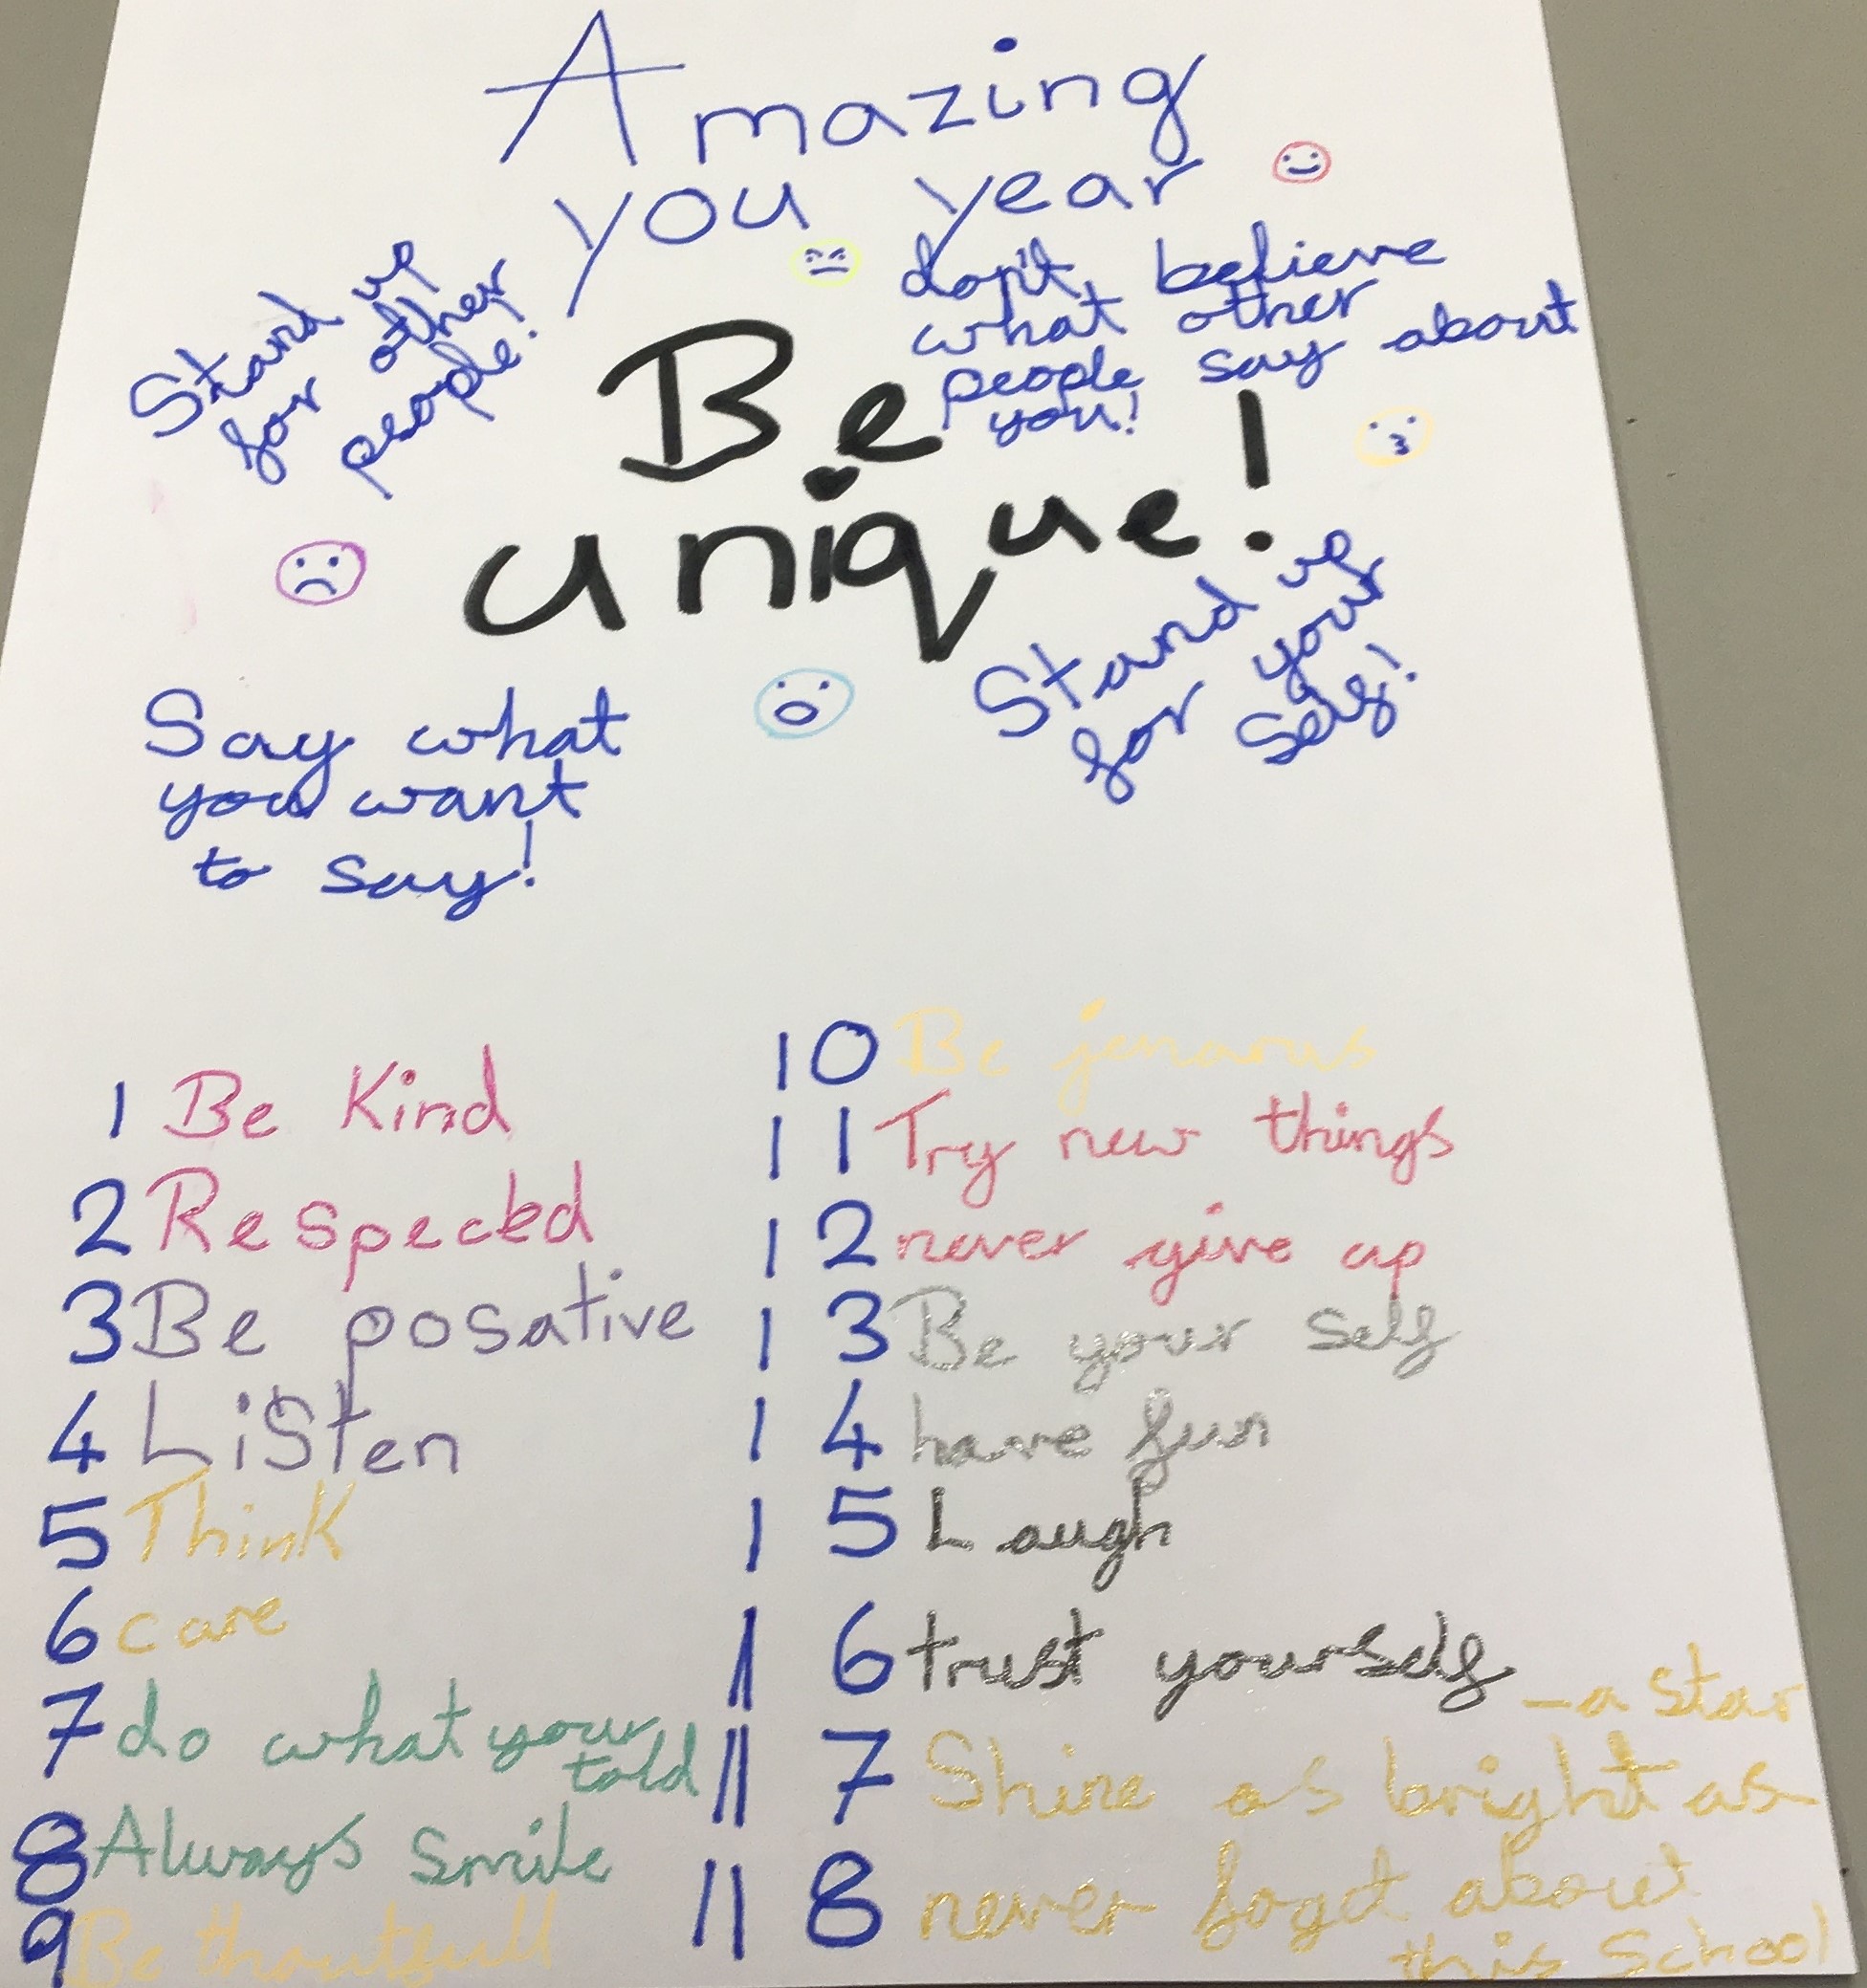 Amazing
you year
Stand up
for other
people!
don't believe
what other
people say about
you!
Be
unique!
Stand up
for your
self!
Say what
you want
to say!
1 Be Kind
2 Respected
3 Be posative
4 Listen
5 Think
6 care
7 do what your
told
8 Always smile
9 Be thoutfull
10 Be jenarus
11 Try new things
12 never give up
13 Be your self
14 have fun
15 Laugh
16 trust yourself
17 Shine as bright as
- a star
18 never foget about
this School